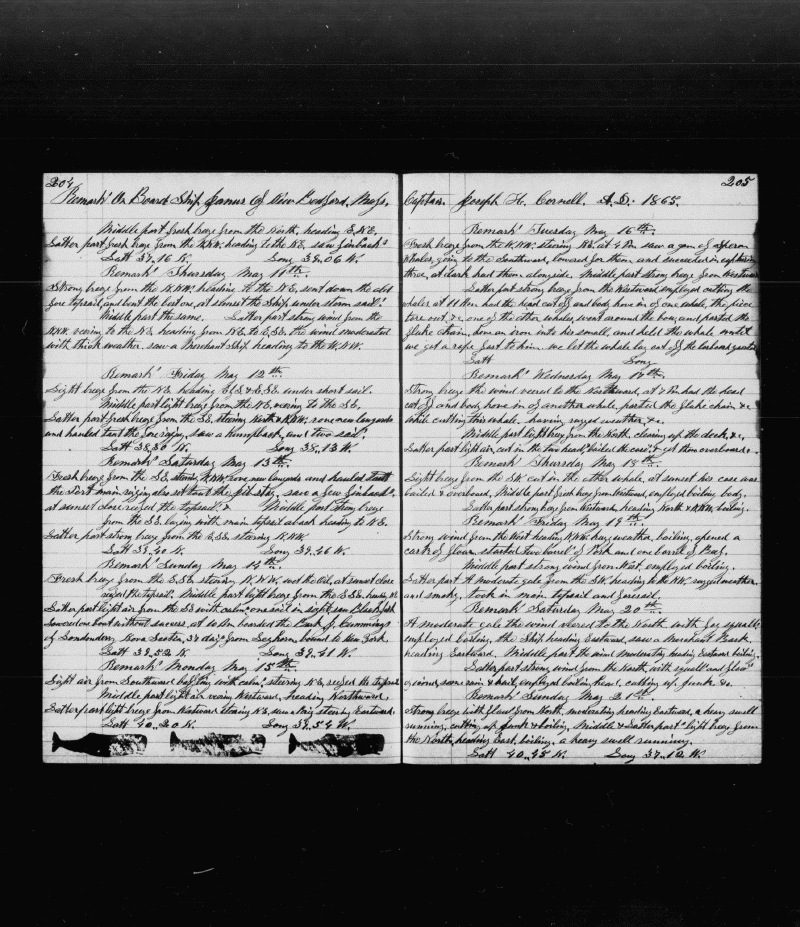 204
Remarks On Board Ship James Of New Bedford, Mass.
Middle part fresh breeze from the North, heading E.N.E.
Latter part fresh breeze from the N.N.W. heading to the N.E. saw finbacks
Latt 37,16 N. Long 39,06 W.
Remarks Thursday May 11th.
Strong breeze from the N.N.W. heading to the N.E. sent down the old
fore topsail, and bent the best one, at sunset the Ship under storm sail.
Middle part the same. Latter part strong wind from the
N.N.W. veering to the N.E. heading from N.E. to E.S.E. the wind moderated
with thick weather, saw a Merchant Ship heading to the W.N.W.
Remarks Friday May 12th.
Light breeze from the N.E. heading E.S.E. under short sail.
Middle part light breeze from the N.E. veering to the S.E.
Latter part fresh breeze from the S.E. steering North & N.N.W. rove new lanyards
and hauled taut the fore riging, saw a Humpback, and two sail.
Latt 38,30 N. Long 38,13 W.
Remarks Saturday May 13th.
Fresh breeze from the S.E. steering N.N.W. rove new lanyards and hauled taut
the Port main riging also set taut the jib stay, saw a few finbacks.
at sunset close reefed the topsails & Middle part strong breeze
from the S.E. laying with main topsail aback heading to N.E.
Latter part strong breeze from the E.S.E. steering N.N.W.
Latt 39,40 N. Long 39,46 W.
Remarks Sunday May 14th.
Fresh breeze from the E.S.E. steering W.N.W. at sunset close
reefed the topsails. Middle part light breeze from the E.S.E.
Latter part light air from the S.E. with calms, one sail in sight, saw Blackfish
lowered one boat without success, at 10 Am boarded the Bark J. Cummings
of Londonderry Nova Scotia, 34 days from Leghorn, bound to New York
Latt 39,52 N. Long 39,41 W.
Remarks Monday May 15th.
Light air from Southward baffling with calms, steering N.E. reefed the topsails
Middle part light air veering Westward, heading Northward.
Latter part light breeze from Westward steering N.E. saw a Brig steering Eastward.
Latt 40,20 N. Long 39,54 W.
205
Captain Joseph H. Cornell. A.D. 1865.
Remarks Tuesday May 16th.
Fresh breeze from the W.N.W. steering N.E. at 4 Pm saw a gam of sperm
Whales, going to the Southward, lowered for them, and succeeded in capturing
three, at dark had them alongside. Middle part strong breeze from Westward
Latter part strong breeze from the Westward employed cutting the
whales at 11 Am had the head cut off and body hove in of one whale, the
tore out &c one of the other whales went around the bow, and parted the
fluke chain, hove an iron into his small, and held the whale until
we got a rope fast to him. we let the whale lay out off the larboard quarter
Latt Long
Remarks Wednesday May 17th.
Strong breeze the wind veered to the Northward, at 7 Pm had the head
cut off and body hove in of another whale, parted the fluke chain &c
while cutting this whale, having rugged weather, &c.
Middle part light breeze from the North, clearing up the deck, &c.
Latter part light air, cut in the two heads, bailed the case, & got them overboard &c
Remarks Thursday May 18th.
Light breeze from the SW cut in the other whale, at sunset his case was
bailed & overboard, Middle part fresh breeze from Westward, employed boiling body.
Latter part strong breeze from Westward heading North & N.N.W. boiling.
Remarks Friday May 19th.
Strong wind from the West heading N.N.W. hazy weather, boiling, opened a
cask of flour, started two barrels of Pork and one barrel of Beef.
Middle part strong wind from West. employed boiling.
Latter part A moderate gale from the SW heading to the N.W. rugged weather,
and smoky, took in main topsail and foresail.
Remarks Saturday May 20th.
A moderate gale the wind veered to the North with fog squalls
employed boiling, the Ship heading Eastward, saw a Merchant Bark
heading Eastward. Middle part the wind moderating, heading Eastward boiling.
Latter part strong wind from the North, with squalls and flaws
of wind, some rain & hail, employed boiling head, cutting up junk &c.
Remarks Sunday May 21st.
Strong breeze with flaws from North, moderating heading Eastward, a heavy swell
running, cutting up junk & boiling, Middle & Latter parts light breeze from
the North, heading East, boiling, a heavy swell running.
Latt 40,45 N. Long 37,12 W.